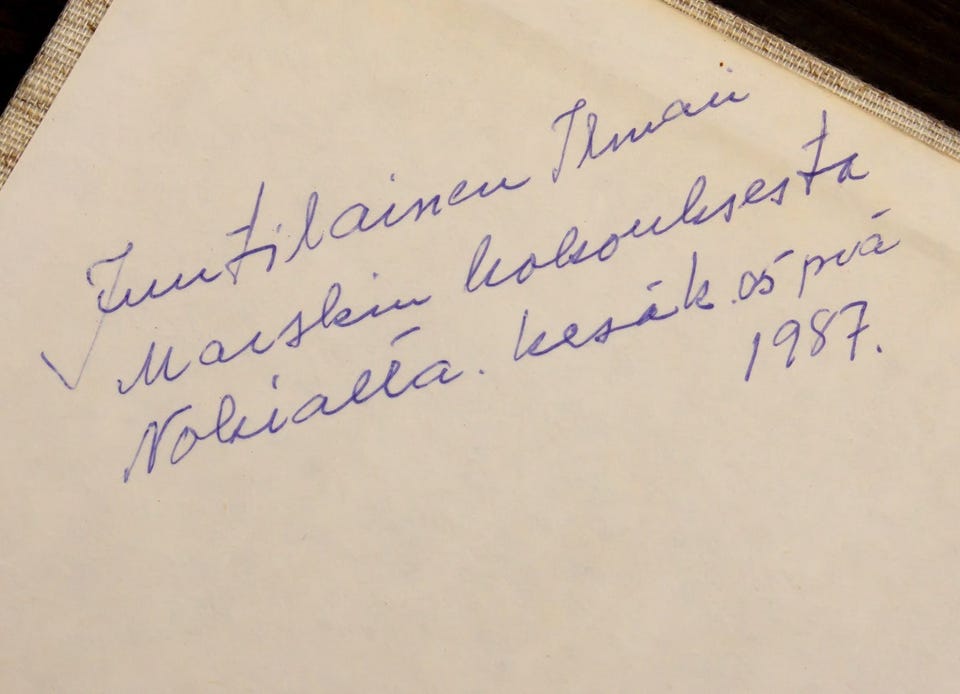 Juutilainen Ilmari
Marskin kokouksesta
Nokialta. kesäk. 05 pvä
1987.